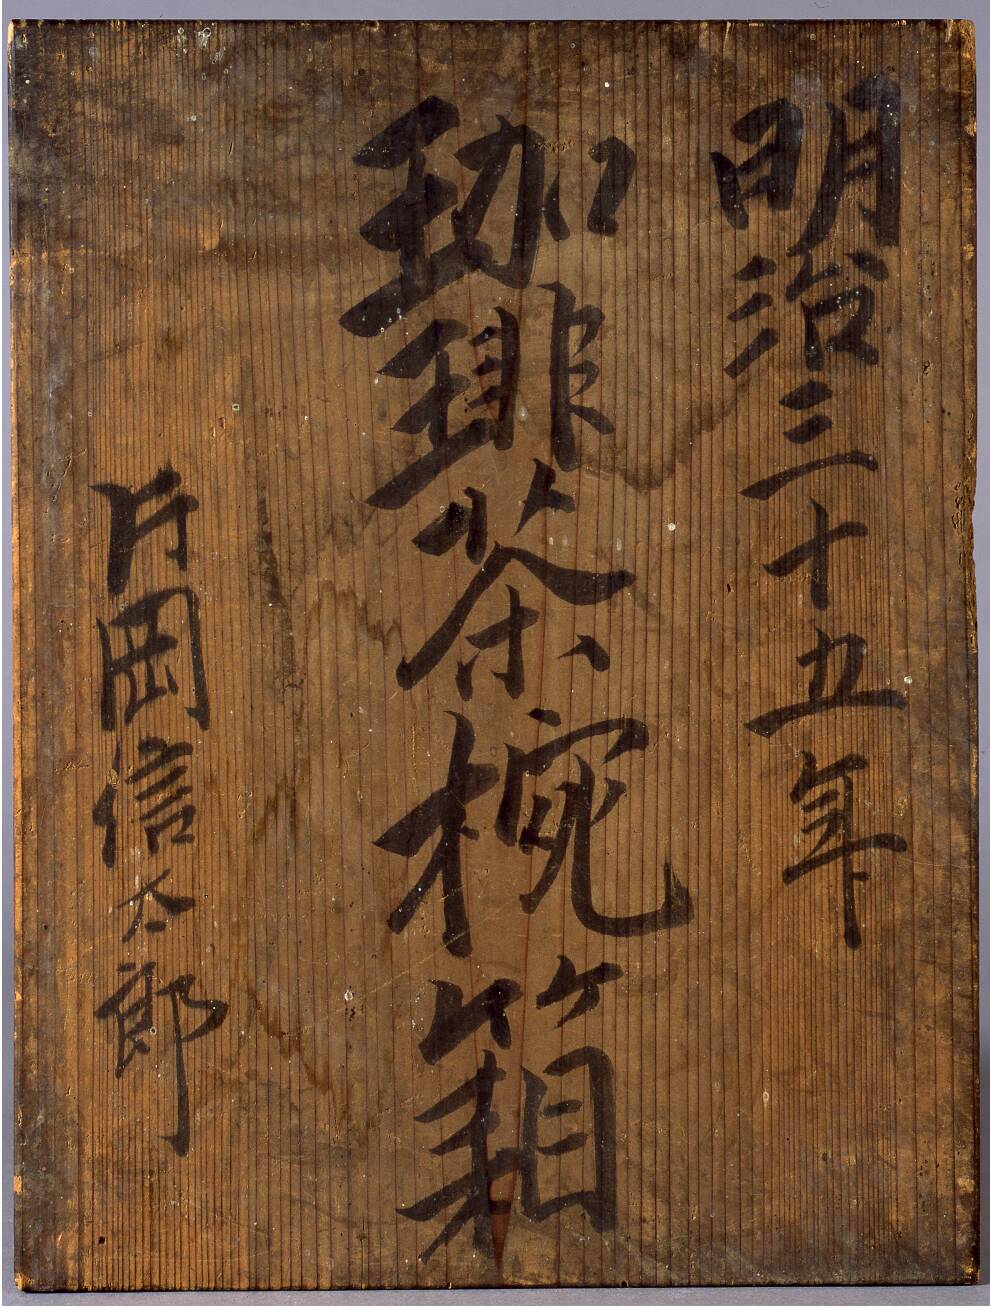 明治三十五年
珈琲茶椀箱
片岡信太郎